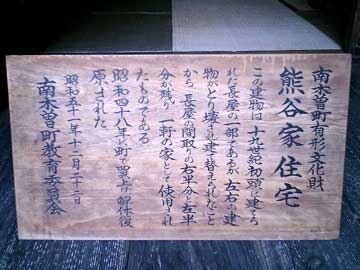 南木曽町有形文化財
熊谷家住宅
この建物は十九世紀初頭に建てら
れた長屋の一部であるが左右の建
物がとり壊され建替えられたこと
から長屋の間取りの右半分と左半
分が残り一軒の家として使用され
たものである
昭和四十八年に町で買上げ解体復
原された
昭和五十一年十二月二十二日
南木曽町教育委員会